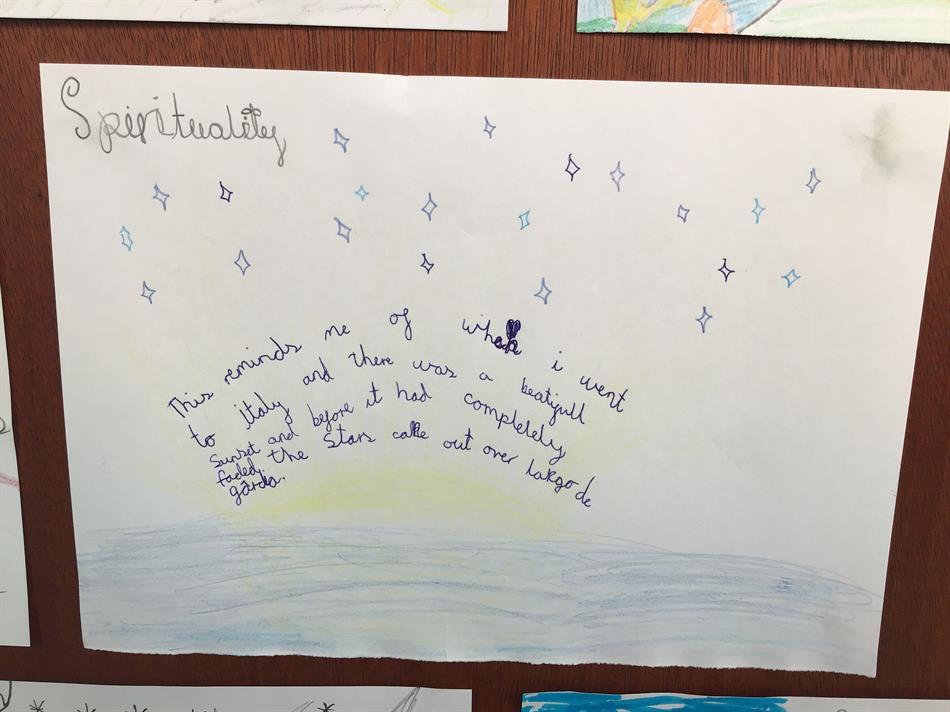 Spirituality
This reminds me of when i went
to italy and there was a beatifull
sunset and before it had completely
faded. the stars came out over lakgo de
garda.